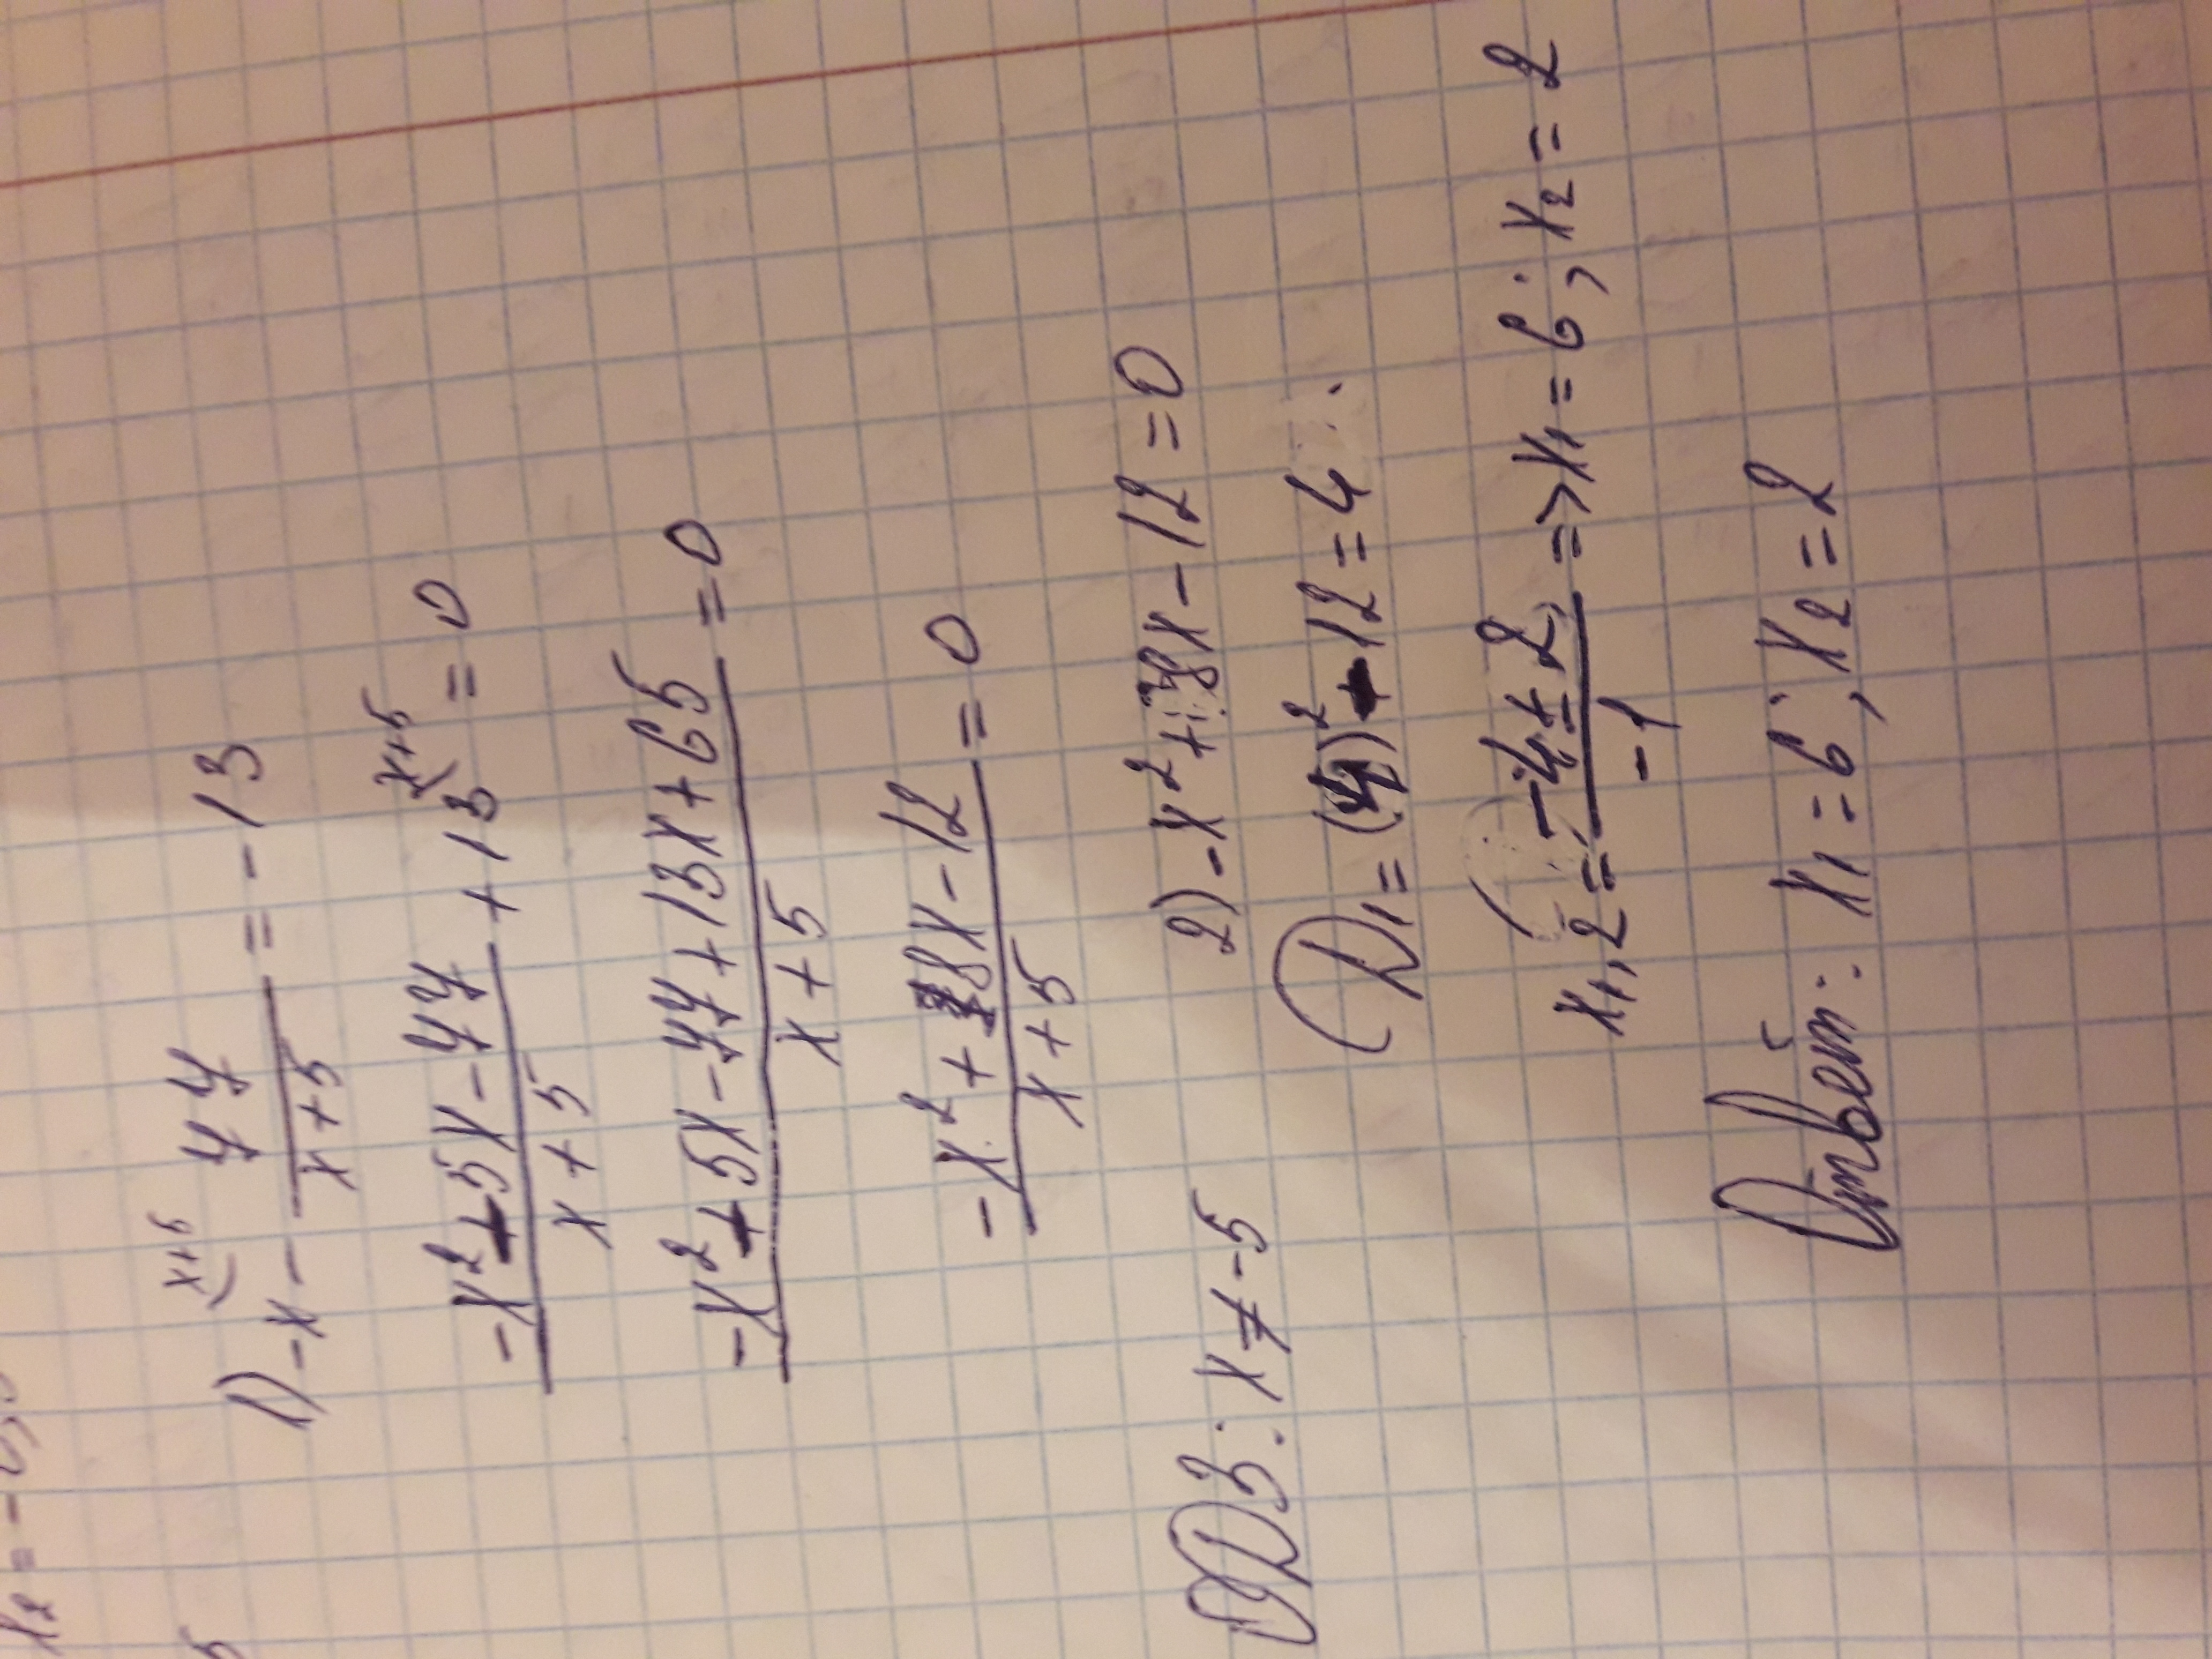 1) -x^{(x+5} - \frac{77}{x+5} = -13
\frac{-x² - 5x - 77}{x+5} + 13^{(x+5} = 0
\frac{-x² - 5x - 77 + 13x + 65}{x+5} = 0
\frac{-x² + 8x - 12}{x+5} = 0
ОДЗ: x ≠ -5 2) -x² + 8x - 12 = 0
D₁ = (4)² - 12 = 4
x₁,₂ = \frac{-4 ± 2}{-1} => x₁ = 6; x₂ = 2
Ответ: x₁ = 6; x₂ = 2